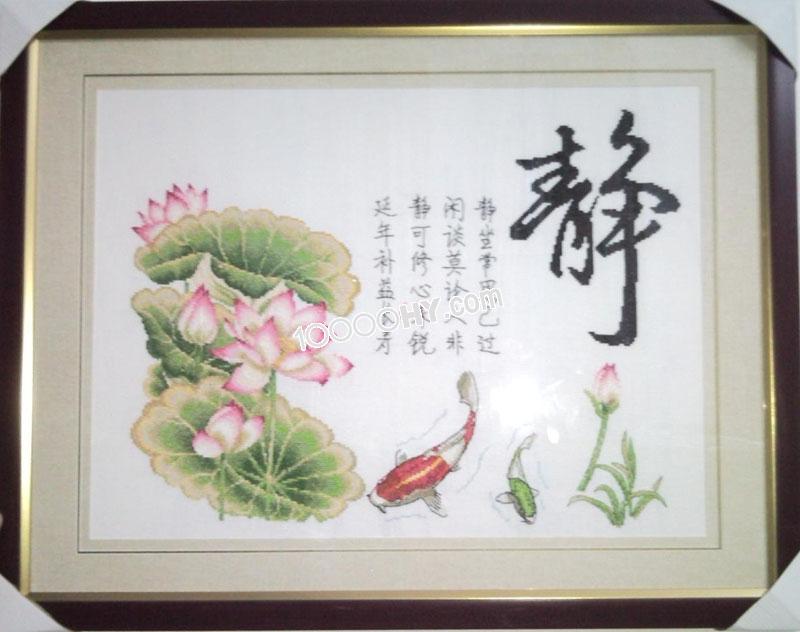 静
静坐常思己过
闲谈莫论人非
静可修心养锐
延年补益
10000HY.com